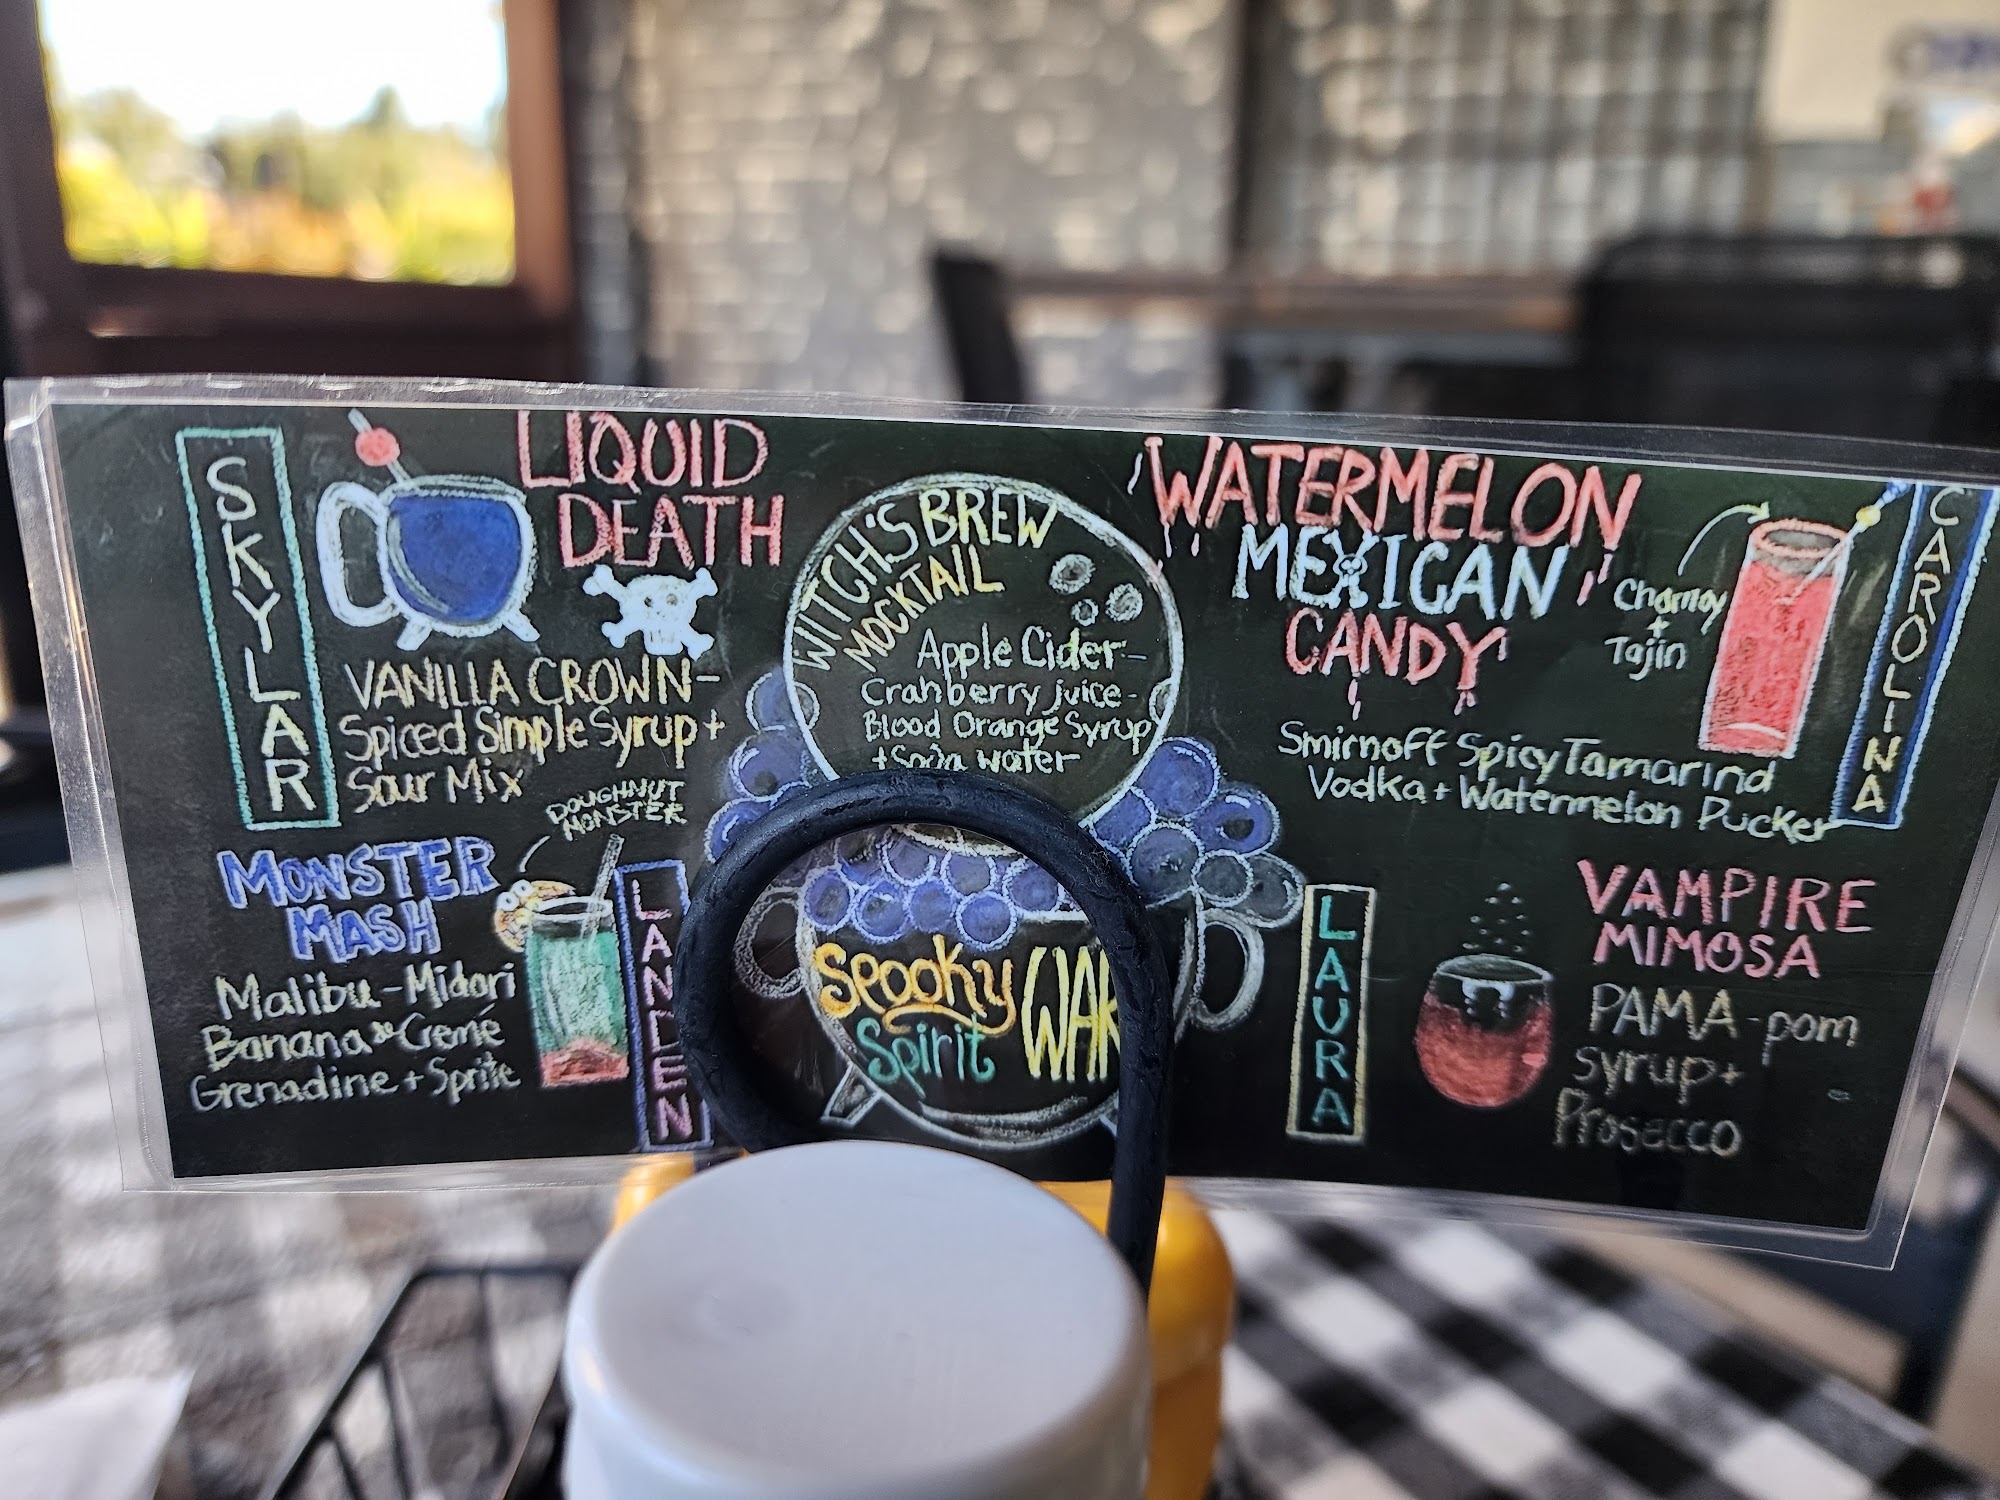 SKYLAR
LIQUID
DEATH
VANILLA CROWN-
Spiced Simple Syrup +
Sour Mix
DOUGHNUT
MONSTER
MONSTER
MASH
Malibu - Midori
Banana de Cremé
Grenadine + Sprite
LANDEN
WITCH'S BREW
MOCKTAIL
Apple Cider-
Cranberry juice-
Blood Orange Syrup
+ Soda water
Spooky
Spirit
WATERMELON
MEXICAN
CANDY
Chamoy
+
Tajin
Smirnoff Spicy Tamarind
Vodka + Watermelon Pucker
CAROLINA
LAURA
VAMPIRE
MIMOSA
PAMA - pom
syrup +
Prosecco